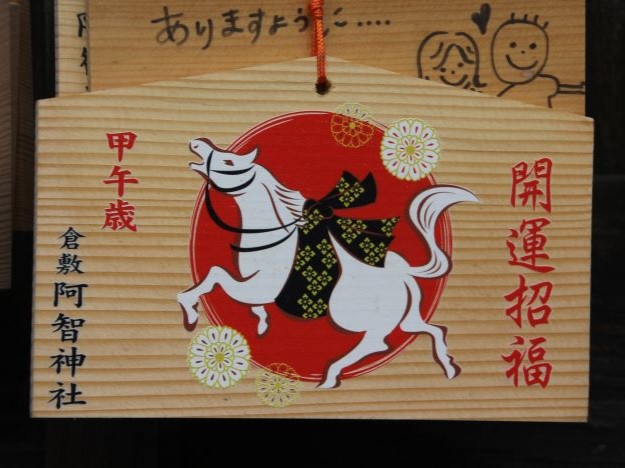 ありますように....
開運招福
甲午歳
倉敷 阿智神社